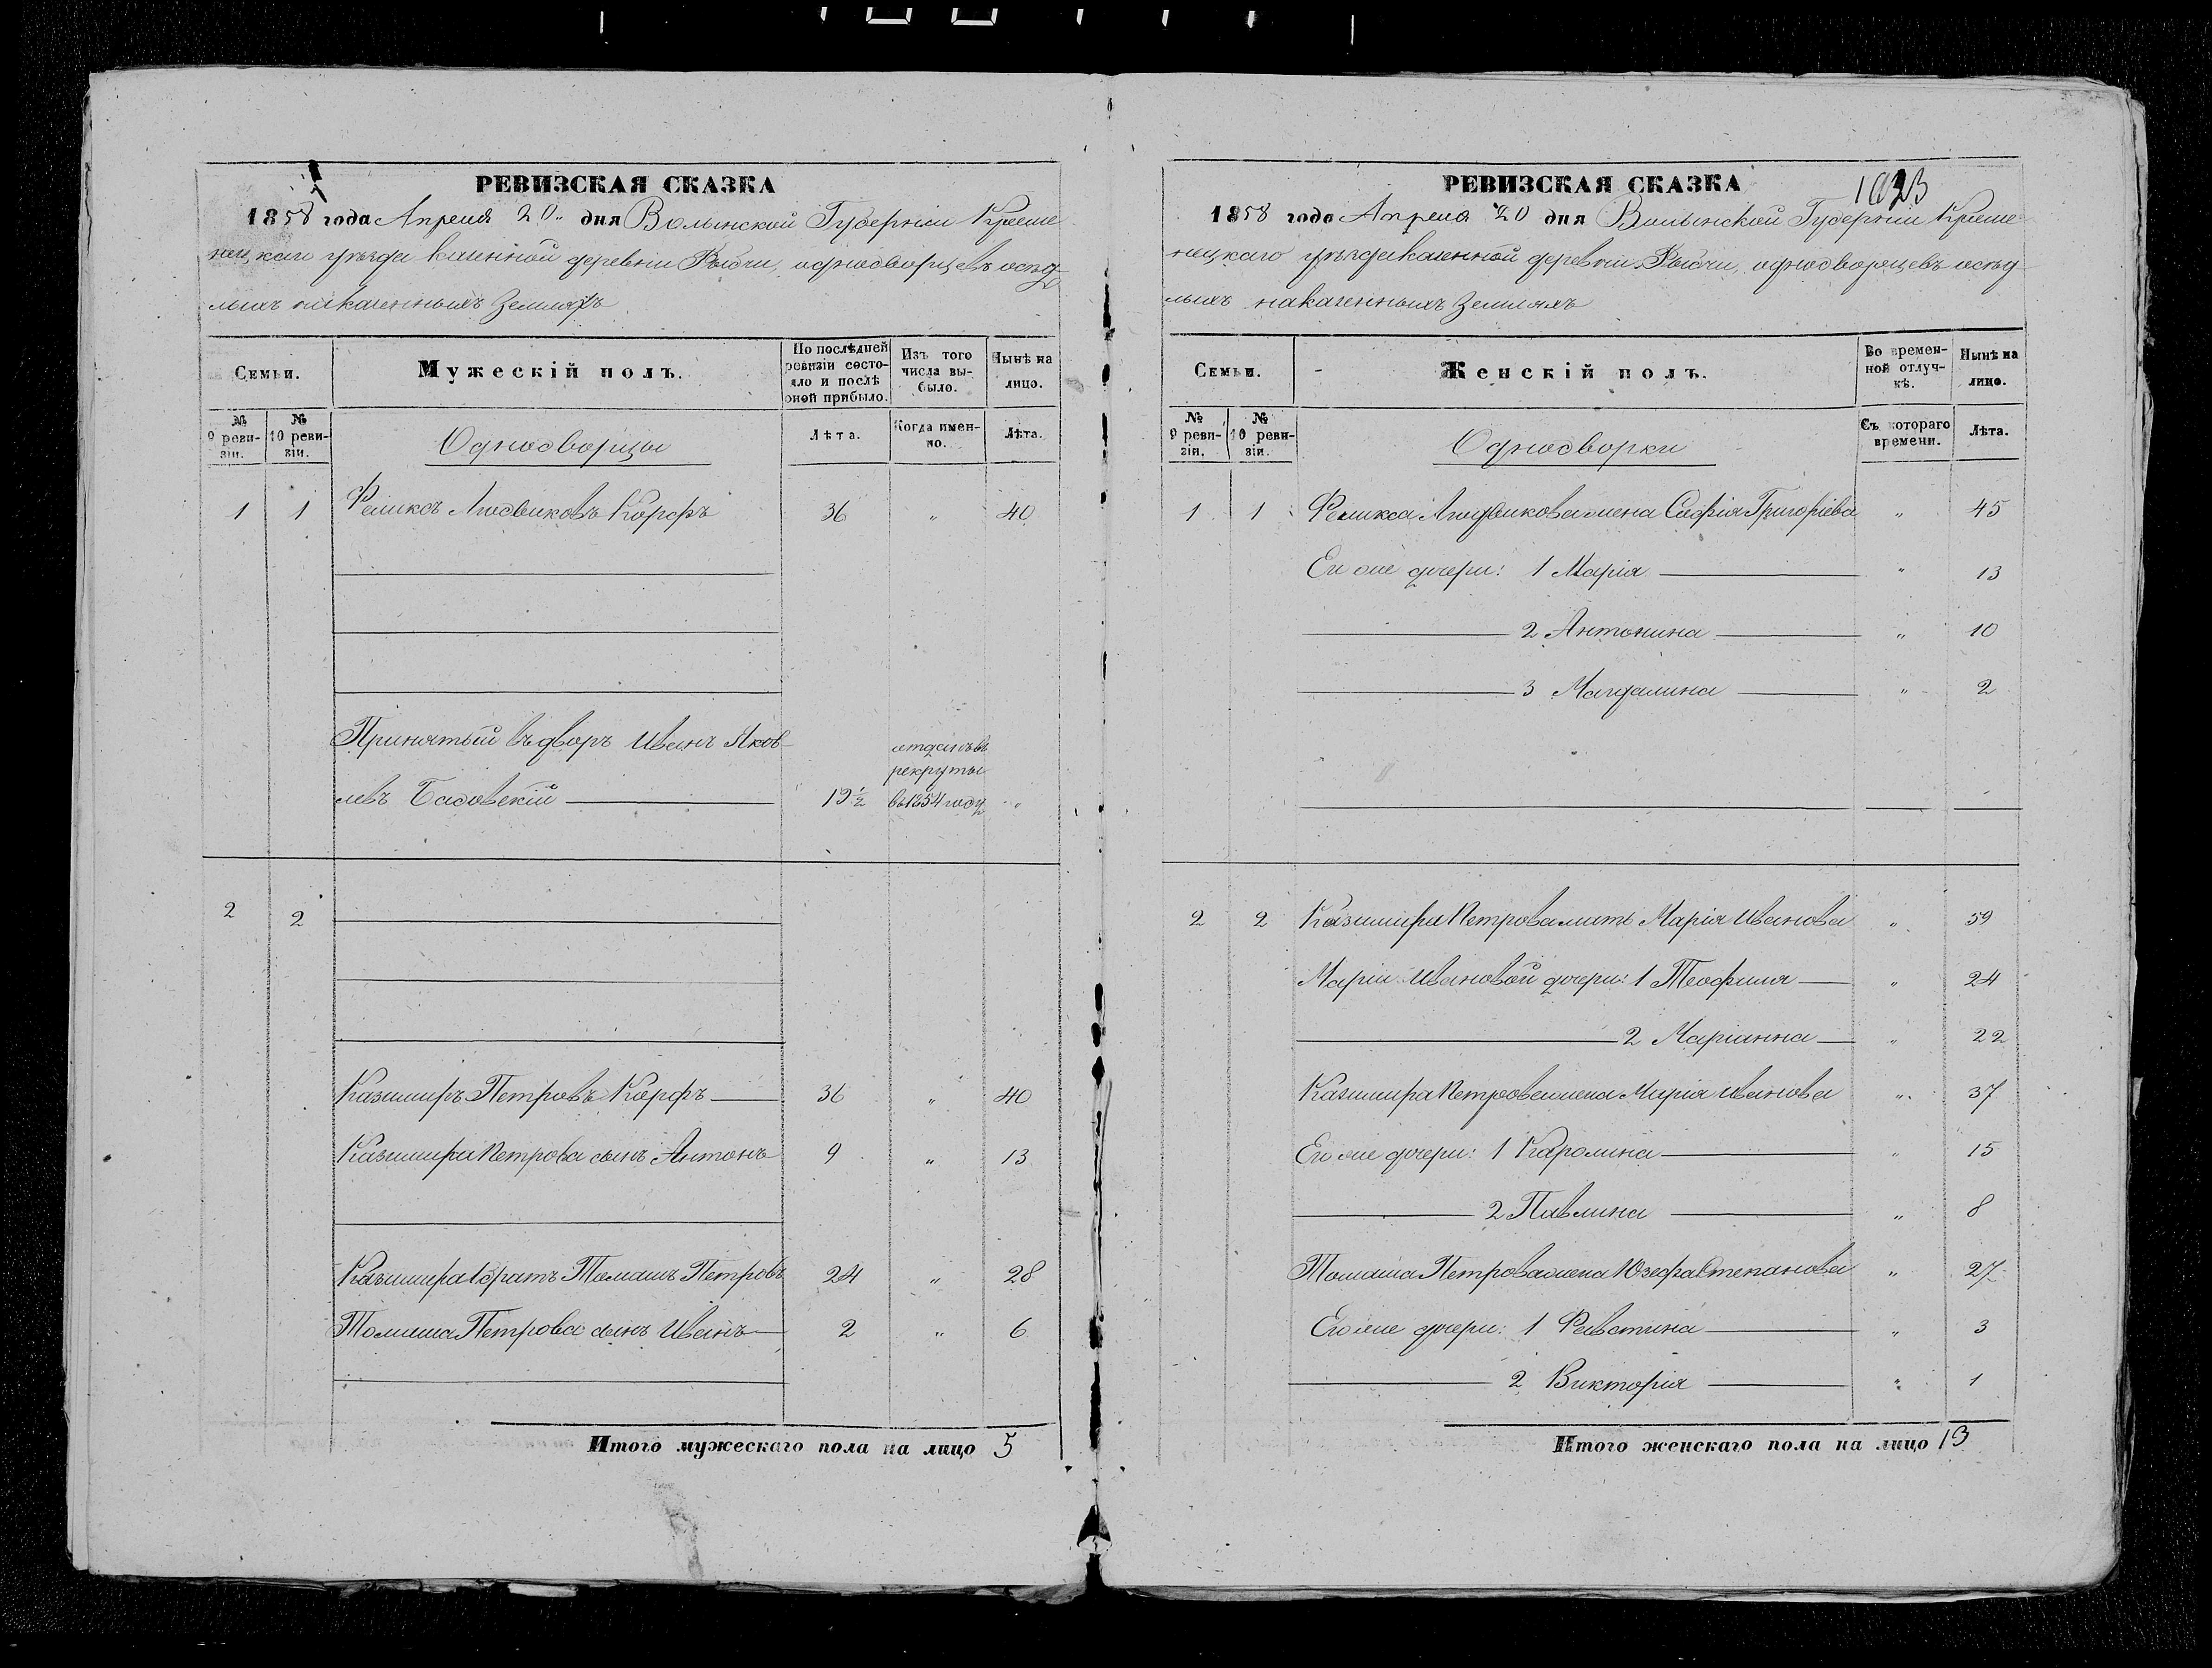 РЕВИЗСКАЯ СКАЗКА
1858 года Апреля 20 дня Волынской Губерніи Креме
нецкаго уѣзда казенной деревни Рыбчи, однодворцевъ осѣд-
лыхъ на казенныхъ Земляхъ
Семьи.
Мужескій полъ.
По послѣдней ревизіи состояло и послѣ оной прибыло.
Изъ того числа выбыло.
Нынѣ на лицо.
№ 9 ревизіи.
№ 10 ревизіи.
Однодворцы
Лѣта.
Когда именно.
Лѣта.
1 1 Феликсъ Людвиковъ Корфъ 36 " 40
Принятый въ дворъ Иванъ Яков-
левъ Басовскій 19 ½ отданъ въ рекруты въ 1854 году "
2 2
Казимиръ Петровъ Корфъ 36 " 40
Казимира Петрова сынъ Антонъ 9 " 13
Казимира братъ Томашъ Петровъ 24 " 28
Томаша Петрова сынъ Иванъ 2 " 6
Итого мужескаго пола на лицо 5
РЕВИЗСКАЯ СКАЗКА
1858 года Апреля 20 дня Волынской Губерніи Креме
нецкаго уѣзда казенной деревни Рыбчи, однодворцевъ осѣд
лыхъ на казенныхъ Земляхъ
Семьи.
Женскій полъ.
Во временной отлучкѣ.
Нынѣ на лицо.
№ 9 ревизіи.
№ 10 ревизіи.
Однодворки
Съ котораго времени.
Лѣта.
1 1 Феликса Людвикова жена Софія Григоріева " 45
Его же дочери: 1 Марія " 13
2 Антонина " 10
3 Магдалина " 2
2 2 Казимира Петрова мать Марія Иванова " 59
Маріи Ивановой дочери: 1 Теофиля " 24
2 Маріанна " 22
Казимира Петрова жена Марія Иванова " 37
Его же дочери: 1 Каролина " 15
2 Павлина " 8
Томаша Петрова жена Юзефа Степанова " 27
Его же дочери: 1 Фавстина " 3
2 Викторія " 1
Итого женскаго пола на лицо 13